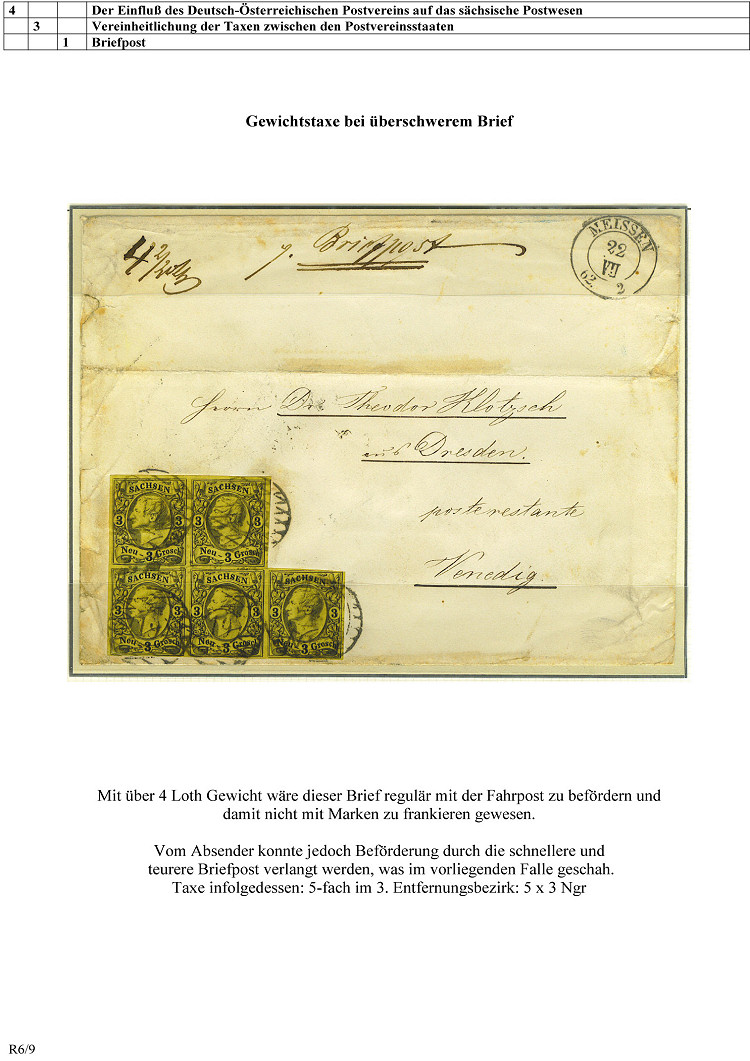 4 Der Einfluß des Deutsch-Österreichischen Postvereins auf das sächsische Postwesen
3 Vereinheitlichung der Taxen zwischen den Postvereinsstaaten
1 Briefpost
Gewichtstaxe bei überschwerem Brief
4 2/ Loth
p. Briefpost
MEISSEN
22
VII
62. 2
Herrn Dr. Theodor Klotzsch
aus Dresden.
poste restante
Venedig.
SACHSEN SACHSEN
3 3 3 3
Neu - 3 Grosch Neu - 3 Grosch
SACHSEN SACHSEN SACHSEN
3 3 3 3 3 3
Neu - 3 Grosch Neu - 3 Grosch Neu - 3 Grosch
Mit über 4 Loth Gewicht wäre dieser Brief regulär mit der Fahrpost zu befördern und
damit nicht mit Marken zu frankieren gewesen.
Vom Absender konnte jedoch Beförderung durch die schnellere und
teurere Briefpost verlangt werden, was im vorliegenden Falle geschah.
Taxe infolgedessen: 5-fach im 3. Entfernungsbezirk: 5 x 3 Ngr
R6/9